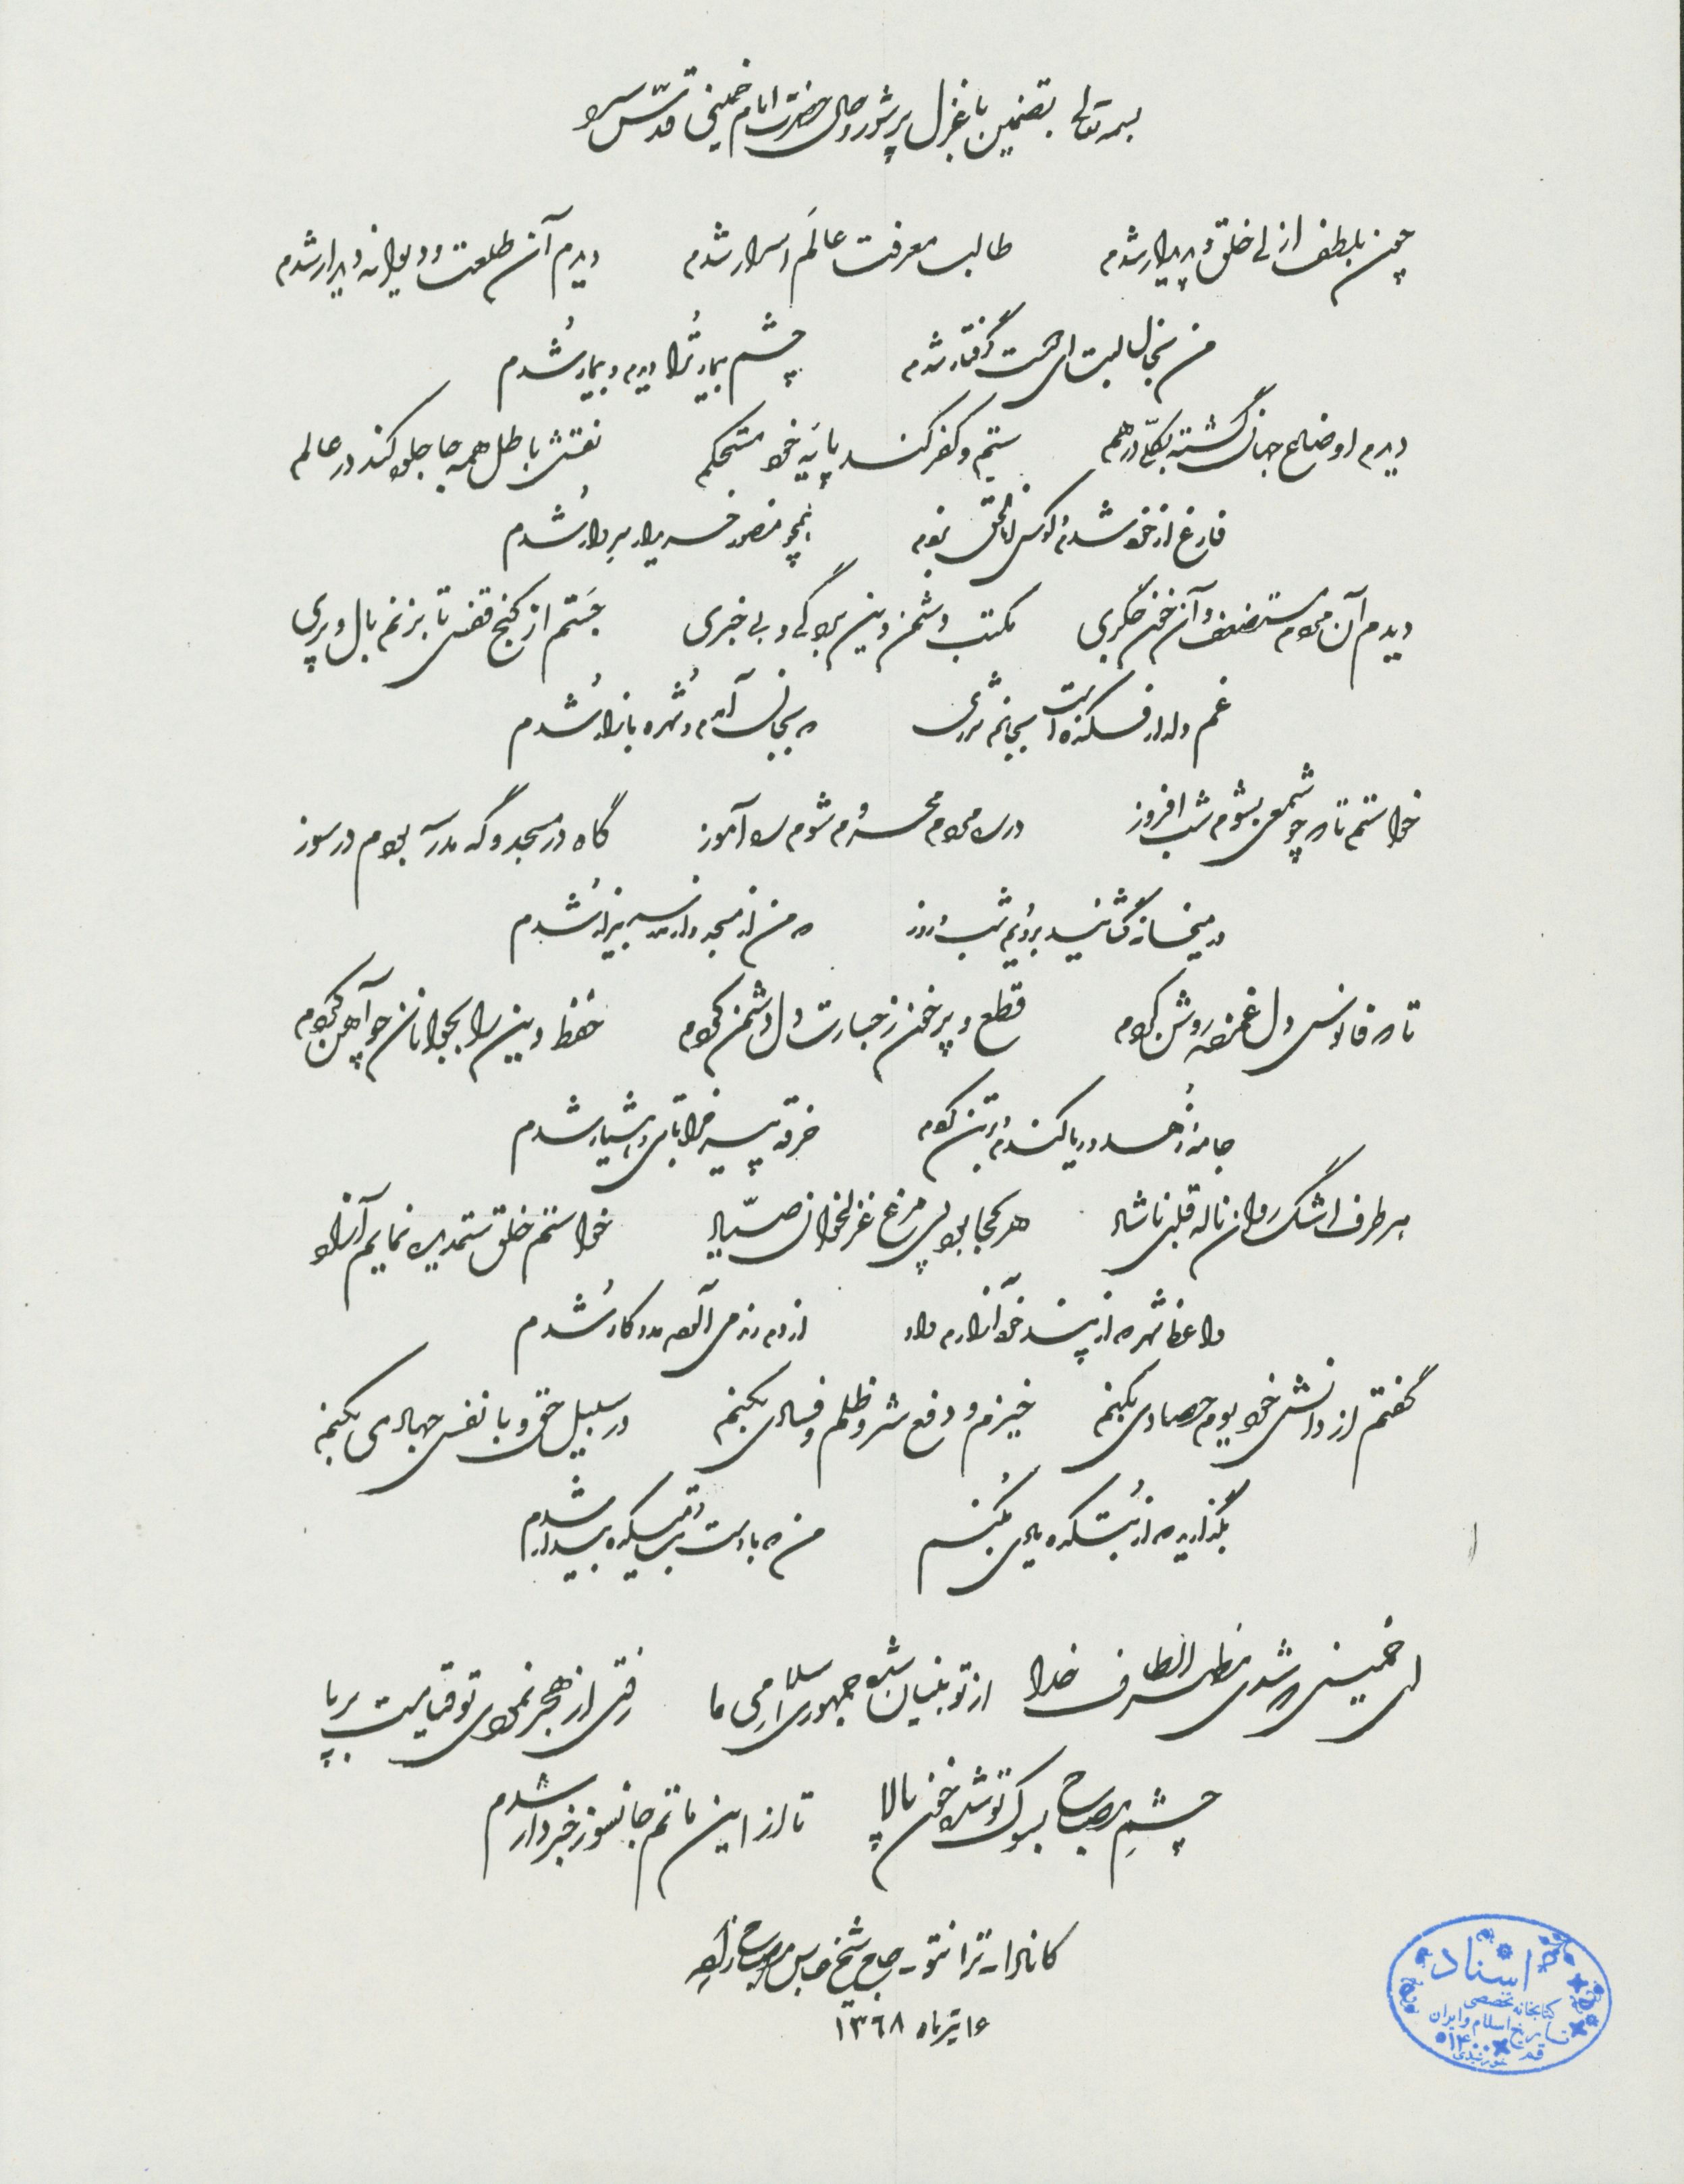 بسمه تعالی تضمین با غزل پرشور و حال حضرت امام خمینی قدّس سره
چون بلطف ازلی خلق و پدیدار شدم طالب معرفت عالَم اسرار شدم دیدم آن طلعت و دیوانه دیدار شدم
من بخال لبت ای دوست گرفتار شدم چشم بیمار تُرا دیدم و بیمار شُدم
دیدم اوضاع جهان گشته بکلّی درهم ستم و کفر کند پایَه خود مستحکم نقش باطل همه جا جلوه کند در عالم
فارغ از خود شدم و کوس اناالحق بزدم همچو منصور خریدار سردار شُدم
دیدم آن مردم مستضعف و آن خون جگری مکتب دشمن دین بردگی و بی خبری جَستم از کنج قفس تا بزنم بال و پری
غم دلدار فکنده است بجانم شرری که بجان آمدم و شُهره بازار شُدم
خواستم تا که چو شمعی بشوم شب افروز درد مردم محروم شوم راه آموز گاه در مسجد و گه مدرسه بودم در سوز
در میخانه گشائید برویم شب و روز که من از مسجد و از مدرسه بیزار شُدم
تا که فانوس دل غمزده روشن کردم قطع و پر خون ز جسارت دل دشمن کردم حفظ دین را بجوانان چو آهن کردم
جامهٔ زهد و ریا کندم و بر تن کردم خرقه پیر خراباتی و هشیار شدم
هر طرف اشک روان ناله قلبی ناشاد هر کجا بود پی مرغ غزلخوان صیّاد خواستم خلق ستمدیده نمایم آزاد
واعظ شهر که از پند خود آزارم داد از دم رند می آلوده مددکار شُدم
گفتم از دانش خود بوم حصادی بکنم خیزم و دفع شر و ظلم و فسادی بکنم در سبیل حق و با نفس جهادی بکنم
بگذارید که از بُتکده یادی بُکنم من که با دست بت میکده بیدار شدم
ای خمینی که شدی مظهر الطاف خدا از تو بنیان شده جمهوری اسلامی ما رفتی از هجر نمودی تو قیامت برپا
چشمِ مصباح بسوگ تو شده خون پالا تا از این ماتم جانسوز خبردار شدم
کانادا - ترانتو - حاج شیخ عباس مصباح زاده
۱۶ تیرماه ۱۳۶۸
اسناد
کتابخانه تخصصی
تاریخ اسلام و ایران
قم